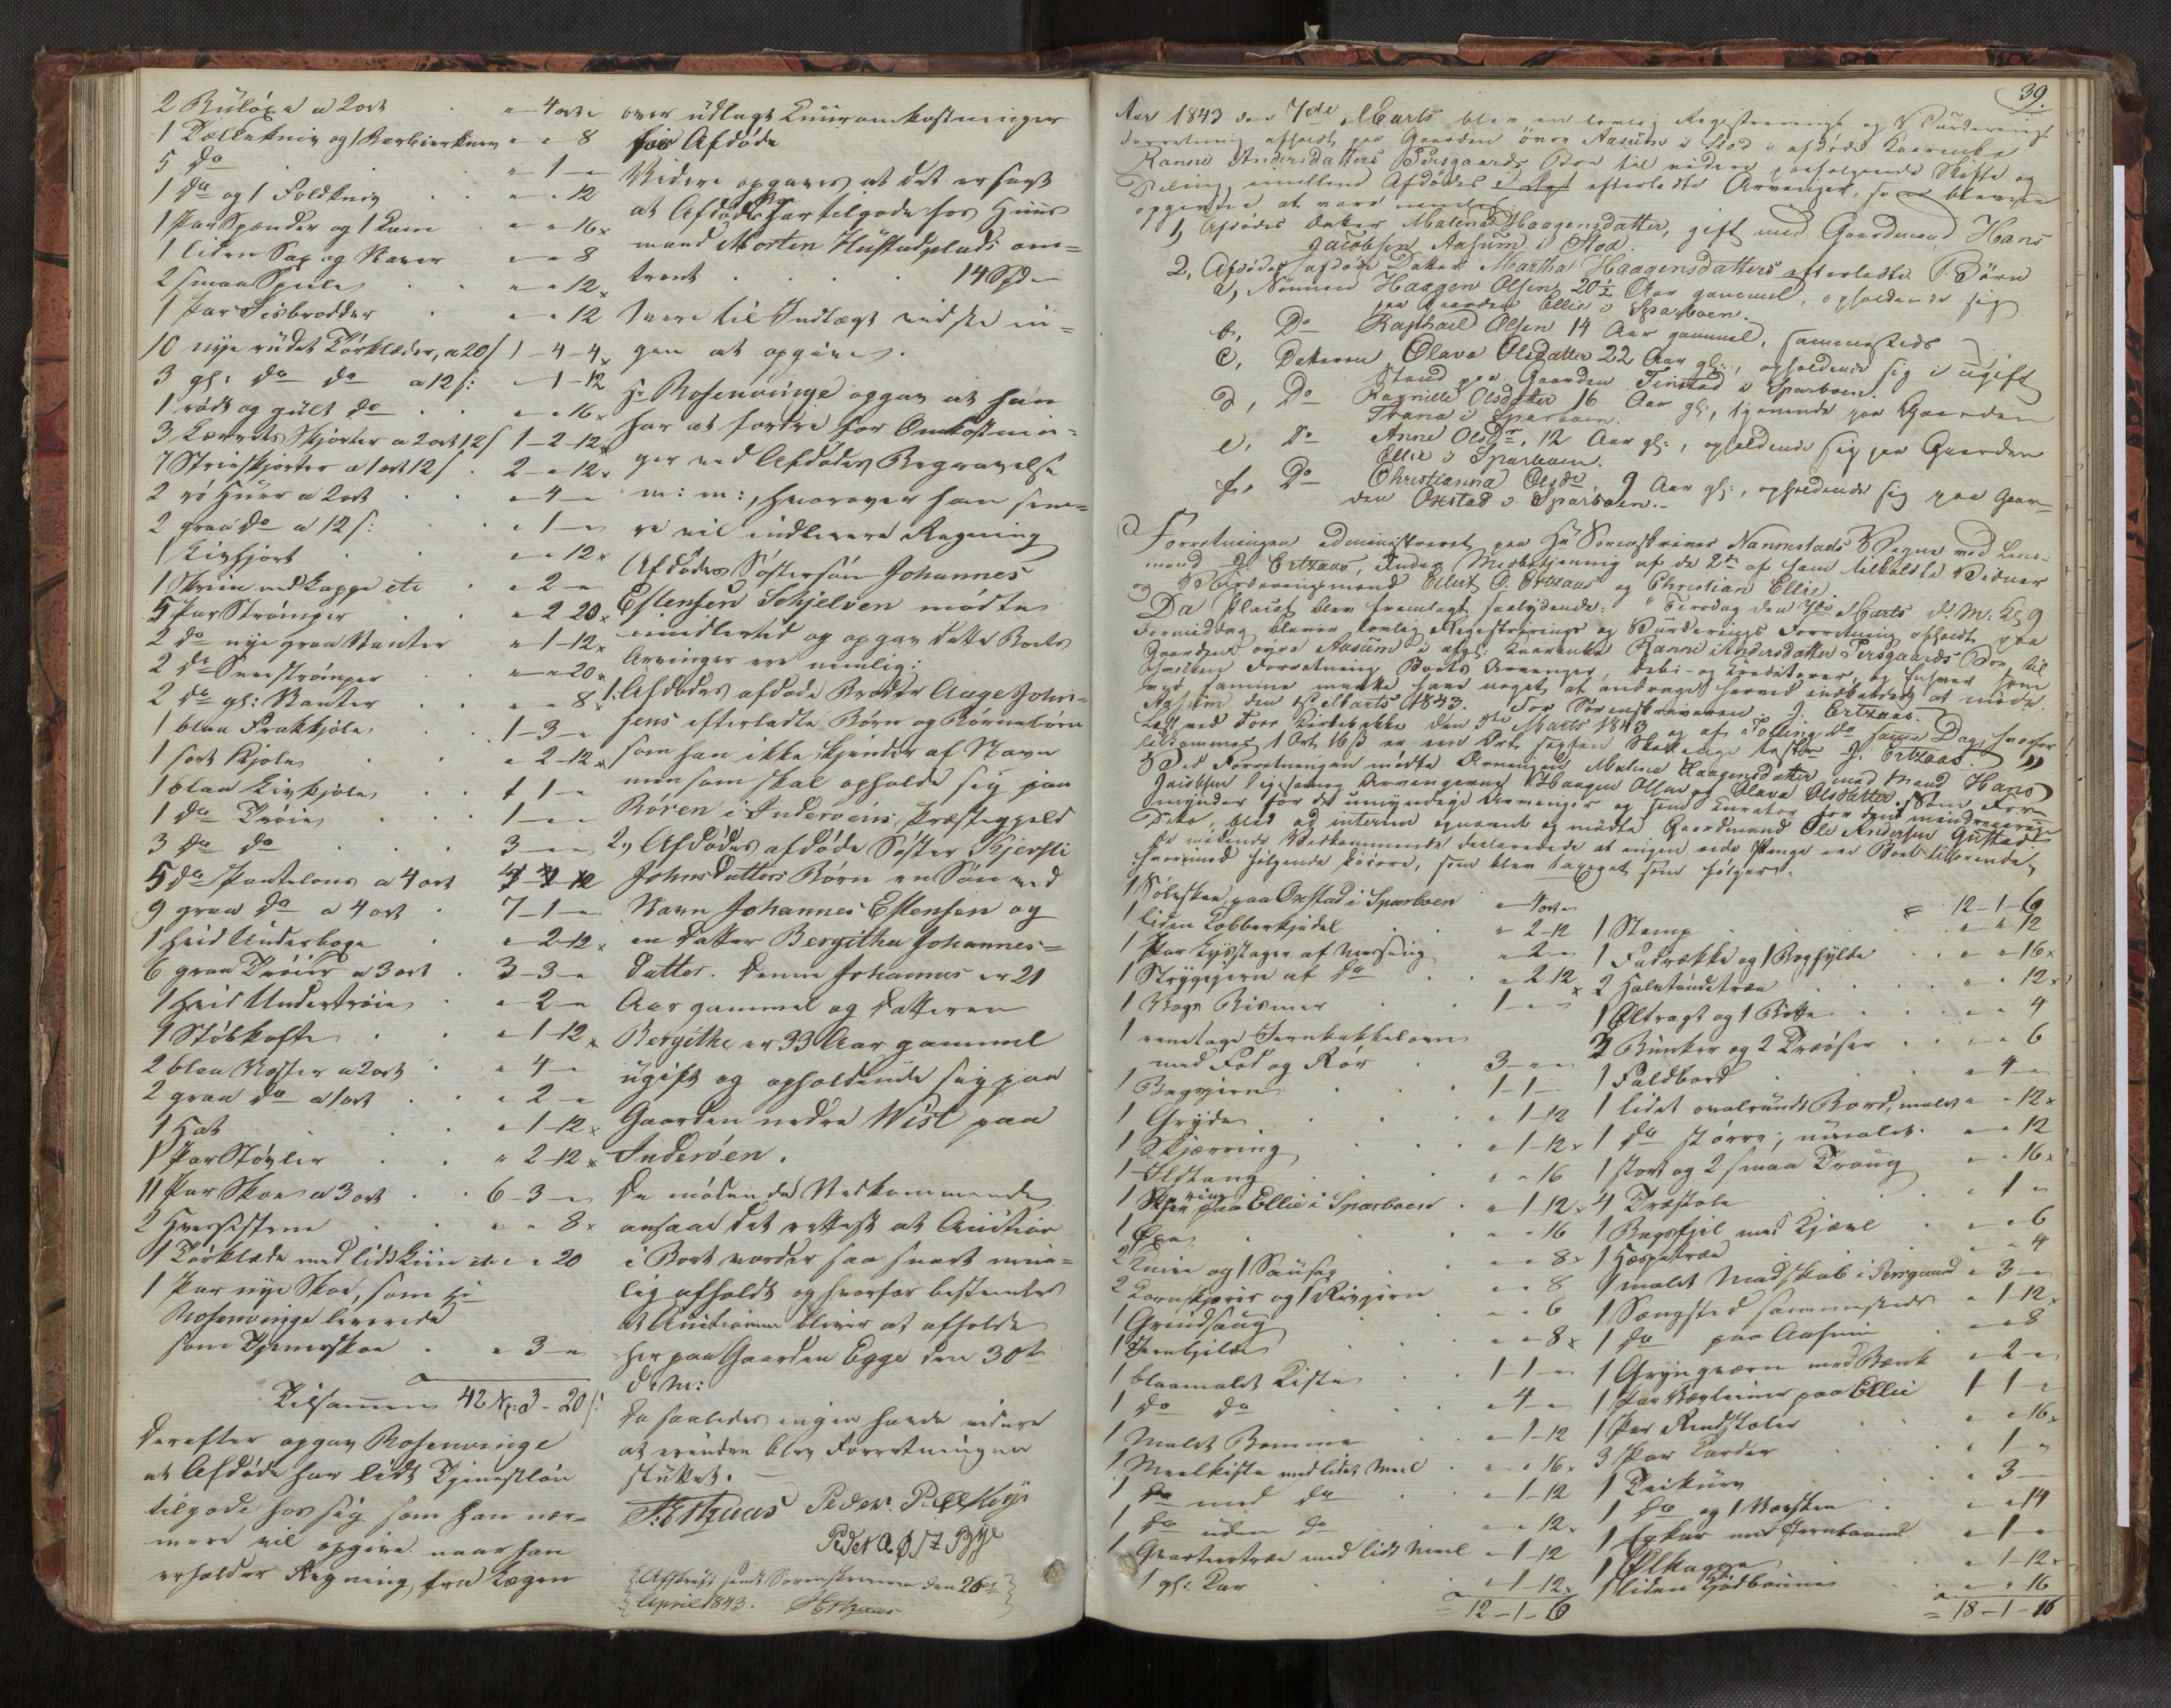 2 Buløxe a 2 ort " 4 ort "
1 Tællekniv og 1 Barbierkniv " " 8
5 do " 1 "
1 do og 1 Foldkniv " " 12
1 Par Spænder og 1 Kam " " 16
1 liden Sax og " " 8
2 smaa Speile " " 12
1 Par Iisbrodder " " 12
10 nye rudet Tørklæder, a 20 s 1 - 4 - 4
3 gl: do do a 12 s: " 1 - 12
1 rødt og gult do " " 16
3 Lærrets Skjorter a 2 ort 12 s 1 - 2 - 12
7 Strieskjorter a 1 ort 12 s 2 - " 12
2 Huer a 2 ort " 4 "
2 graa do a 12 s: " 1 "
1 Livskjort " " 12
1 Skrin med Kappe etc " 2 "
5 Par Strømper " 2 20
2 do nye graa Vanter " 1 - 12
2 do Sneestrømper " " 20
2 do gl: Vanter " " 8
1 blaa Frakkjole 1 - 3 "
1 sort Kjole " 2 - 12
1 blaa Livkjole 1 1 "
1 do Trøie 1 " "
3 do do 3 " "
5 do Pantelons a 4 ort
9 graa do a 4 ort 7 - 1 "
1 hvid Underboxe " 2 - 12
6 graa Trøier a 3 ort 3 - 3 "
1 hvid Undertrøie " 2 "
1 " 1 - 12
2 blaa Vester a 2 ort " 4 "
2 graa do a 1 ort " 2 "
1 Hat " 1 - 12
1 Par Støvler " 2 - 12
11 Par Skoe a 3 ort 6 - 3 "
2 Hvessesteene " " 8
1 Tørklæde med lidt etc " " 20
1 Par nye Skoe, som Hr
Rosenvinge leverede
som Tjenerskoe " 3 "
Tilsammen 42 Sp: 3 - 20 s:
Derefter opgav Rosenvinge
at Afdøde har lidt Tjenestløn
tilgode hos sig som han nær-
mere vil opgive naar han
erholder Regning fra Lægen
over udlagt Kuuromkostninger
for Afdøde
Videre opgaves at det er sagt
at Afdøde har tilgode hos Huus-
mand Morten Hustadplads om-
trent 14 Spd "
mere til Indtægt vidste in-
gen at opgive.
Hr Rosenvinge opgav at han
har at fordre for Omkostnin-
ger ved Afdødes Begravelse
m: m:, hvorover han sene-
re vil indlevere Regning
Afdødes Søstersøn Johannes
Estensen Schjelven mødte
imidlertid og opgav dette Boets
Arvinger ere nemlig:
1. Afdødes afdøde Broder Aage John-
sens efterladte Børn og Børnebørn
som han ikke kjender af Navn
men som skal opholde sig paa
Røren i Inderøens Præstegjeld
2, Afdødes afdøde Søster Kjersti
Johnsdatters Børn en Søn ved
Navn Johannes Estensen og
en Datter Bergitha Johannes-
datter. Denne Johannes er 21
Aar gammel og Datteren
Bergithe er 33 Aar gammel
ugift og opholdende sig paa
Gaarden nedre Wist paa
Inderøen.
De mødende Vedkommende
ansaae det rettest at Auction
i Boet vorder saa snart mue-
lig afholdt og hvorfor bestemtes
at Auctionen bliver at afholde
her paa Gaarden Egge den 30te
d: M:
Da saaledes ingen havde videre
at erindre blev Forretningen
sluttet.
J. Ertzaas Peder P:
Peder
Afskrift sendt Sorenskriveren den 26de
April 1843. J Ertzaas
39.
Aar 1843 den 7de Marts blev en lovlig Registrerings og Vurderings
Forretning afholdt paa Gaarden øvre Aasum i Stod i afdøde Enke
Ranne Andersdatters Fersgaards Boe til videre paafølgende Skifte og
Deling imellem Afdødes efterladte Arvinger, som bleve
opgivne at være nemlig:
1, Afdødes Datter Malena Haagensdatter, gift med Gaardmand Hans
Jacobsen Aasum i Stod.
2, Afdødes afdøde Datter Martha Haagensdatters efterladte 6 Børn
a, Sønnen Haagen Olsen 20½ Aar gammel, opholdende sig
paa Gaarden Ellie i Sparboen.
b, Do Raphael Olsen 14 Aar gammel, sammesteds
c, Datteren Olava Olsdatter 22 Aar gl:, opholdende sig i ugift
Stand paa Gaarden Tinstad i Sparboen.
d, Do Ragnille Olsdatter 16 Aar gl:, tjenende paa Gaarden
Trana i Sparboen.
e, Do Anne Olsdr. 12 Aar gl:, opholdende sig paa Gaarden
Ellie i Sparboen.
f. Do Christianna Olsdr, 9 Aar gl:, opholdende sig paa Gaar-
den Oxstad i Sparboen.
Forretningen administreret paa Hr Sorenskriver Nannestads Vegne ved Lens-
mand J. Ertzaas, Under Medbetjening af de 2de af ham tilkaldte Vidner
og Vurderingsmænd Ellert A. Ertzaas og Christian Ellie.
Da Placat blev fremlagt saalydende: "Tirsdag den 7de Marts d. M: Kl 9
Formiddag bliver lovlig Registrerings og Vurderings Forretning afholdt paa
Gaarden øvre Aasum i afg: Enke Ranne Andersdatter Fersgaards Boe, til
hvilken Forretning Boets Arvinger, Debi- og Creditorer, og Enhver som
ved samme maatte have noget at andrage herved indkaldes at møde.
Aasum den 1te Marts 1843. For Sorenskriveren J. Ertzaas.
Læst ved Foer Kirkebakke den 5te Marts 1843 og af Følling do samme Dag, hvorfor
tilkommer 1 Ort 16 ß er een Ort sexten Skillinge J. Ertzaas."
Ved Forretningen mødte Arvingen Malena Haagensdatter med Mand Hans
Jacobsen ligesaa Arvingerne Haagen Olsen og Olava Olsdatter. Som For-
mynder for de umyndige Arvinger og som Curator for den mindreaarige
blev ad interim opnævnt og mødte Gaardmand Ole Andersen Gustad.
De mødende Vedkommende declarerede at ingen rede Penge var Boet tilhørende,
hvorimod følgende Løsøre, som blev taxeret som følger:
1 Sølvskee, paa Oxstad i Sparboen " 4 ort "
1 liden Kobberkjedel " 2 - 12
1 Par Lysestager af Messing " 2 "
1 Strygejern af do " 2 - 12
1 Vægt Bismer 1 - " "
1 eenetages Jernbakkelovn
med Fod og Rør 3 - " "
1 Bagejern 1 - 1 -
1 Gryde " 1 - 12
1 Skjæring " 1 - 12
1 Ildtang " " 16
1 paa Ellie i Sparboen " 1 12
1 Øxe " " 16
2 Knive og 1 Saufax " " 8
2 og 1 Rivjern " " 8
1 Grindsaug " " 6
1 " " 8
1 blaamalet Kiste 1 - 1 "
1 do do " 4 "
1 Malet Bomme " 1 - 12
1 Meelkiste med lidet Meel " " 16
1 do med do " 1 - 12
1 do uden do " " 12
1 med lidt Meel " 1 - 12
1 gl: Kar " 1 - 12
= 12 - 1 - 6
12 - 1 - 6
1 Stamp " " 12
1 og 1 Boghylde " " 16
2 Halvtøndetræe " " 12
1 Øltragt og 1 Bøtte " " 4
2 Bunker og 2 " " 6
1 Foldbord " 4 "
1 lidet ovalrundt Bord, malet " " 12
1 do større, umalet " " 12
1 stort og 2 smaa Traug " " 16
4 Træstole " 1 "
1 Bagefjel med Kjævl " " 6
1 Haspetræe " " 4
1 malet Madskab i Fersgaard " 3 "
1 Sængsted sammesteds " 1 - 12
1 do paa Aasum " " 8
1 Grynqværn med Bænk " 2 "
1 Par paa Ellie 1 1 -
1 Par " " 16
3 Par Karder " 1 "
1 " 3 "
1 do og 1 " " 14
1 med Jernbaand " 1 "
1 Ølkagge " 1 - 12
1 liden " " 16
= 18 - 1 - 16